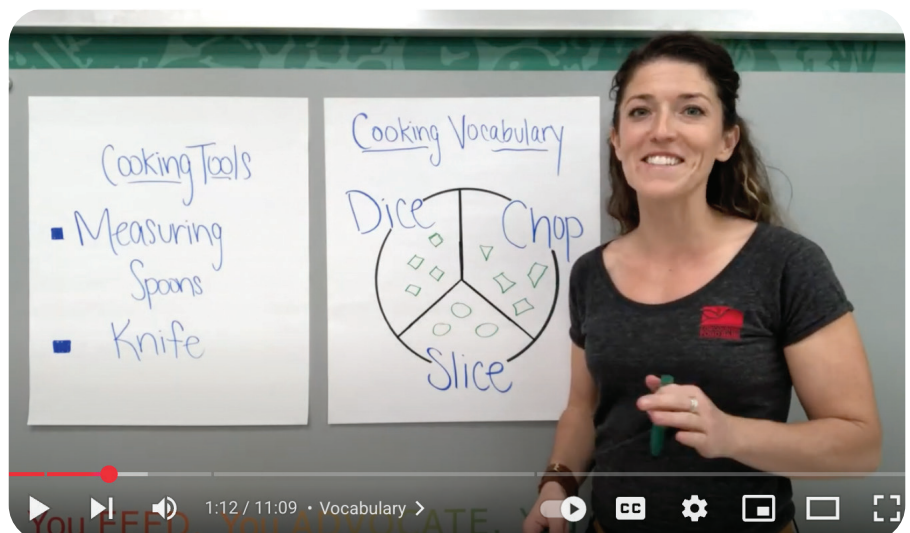 Cooking Tools
Measuring
Spoons
Knife
Cooking Vocabulary
Dice
Chop
Slice
1:12 / 11:09 • Vocabulary >
CC
You FEED. You ADVOCATE.